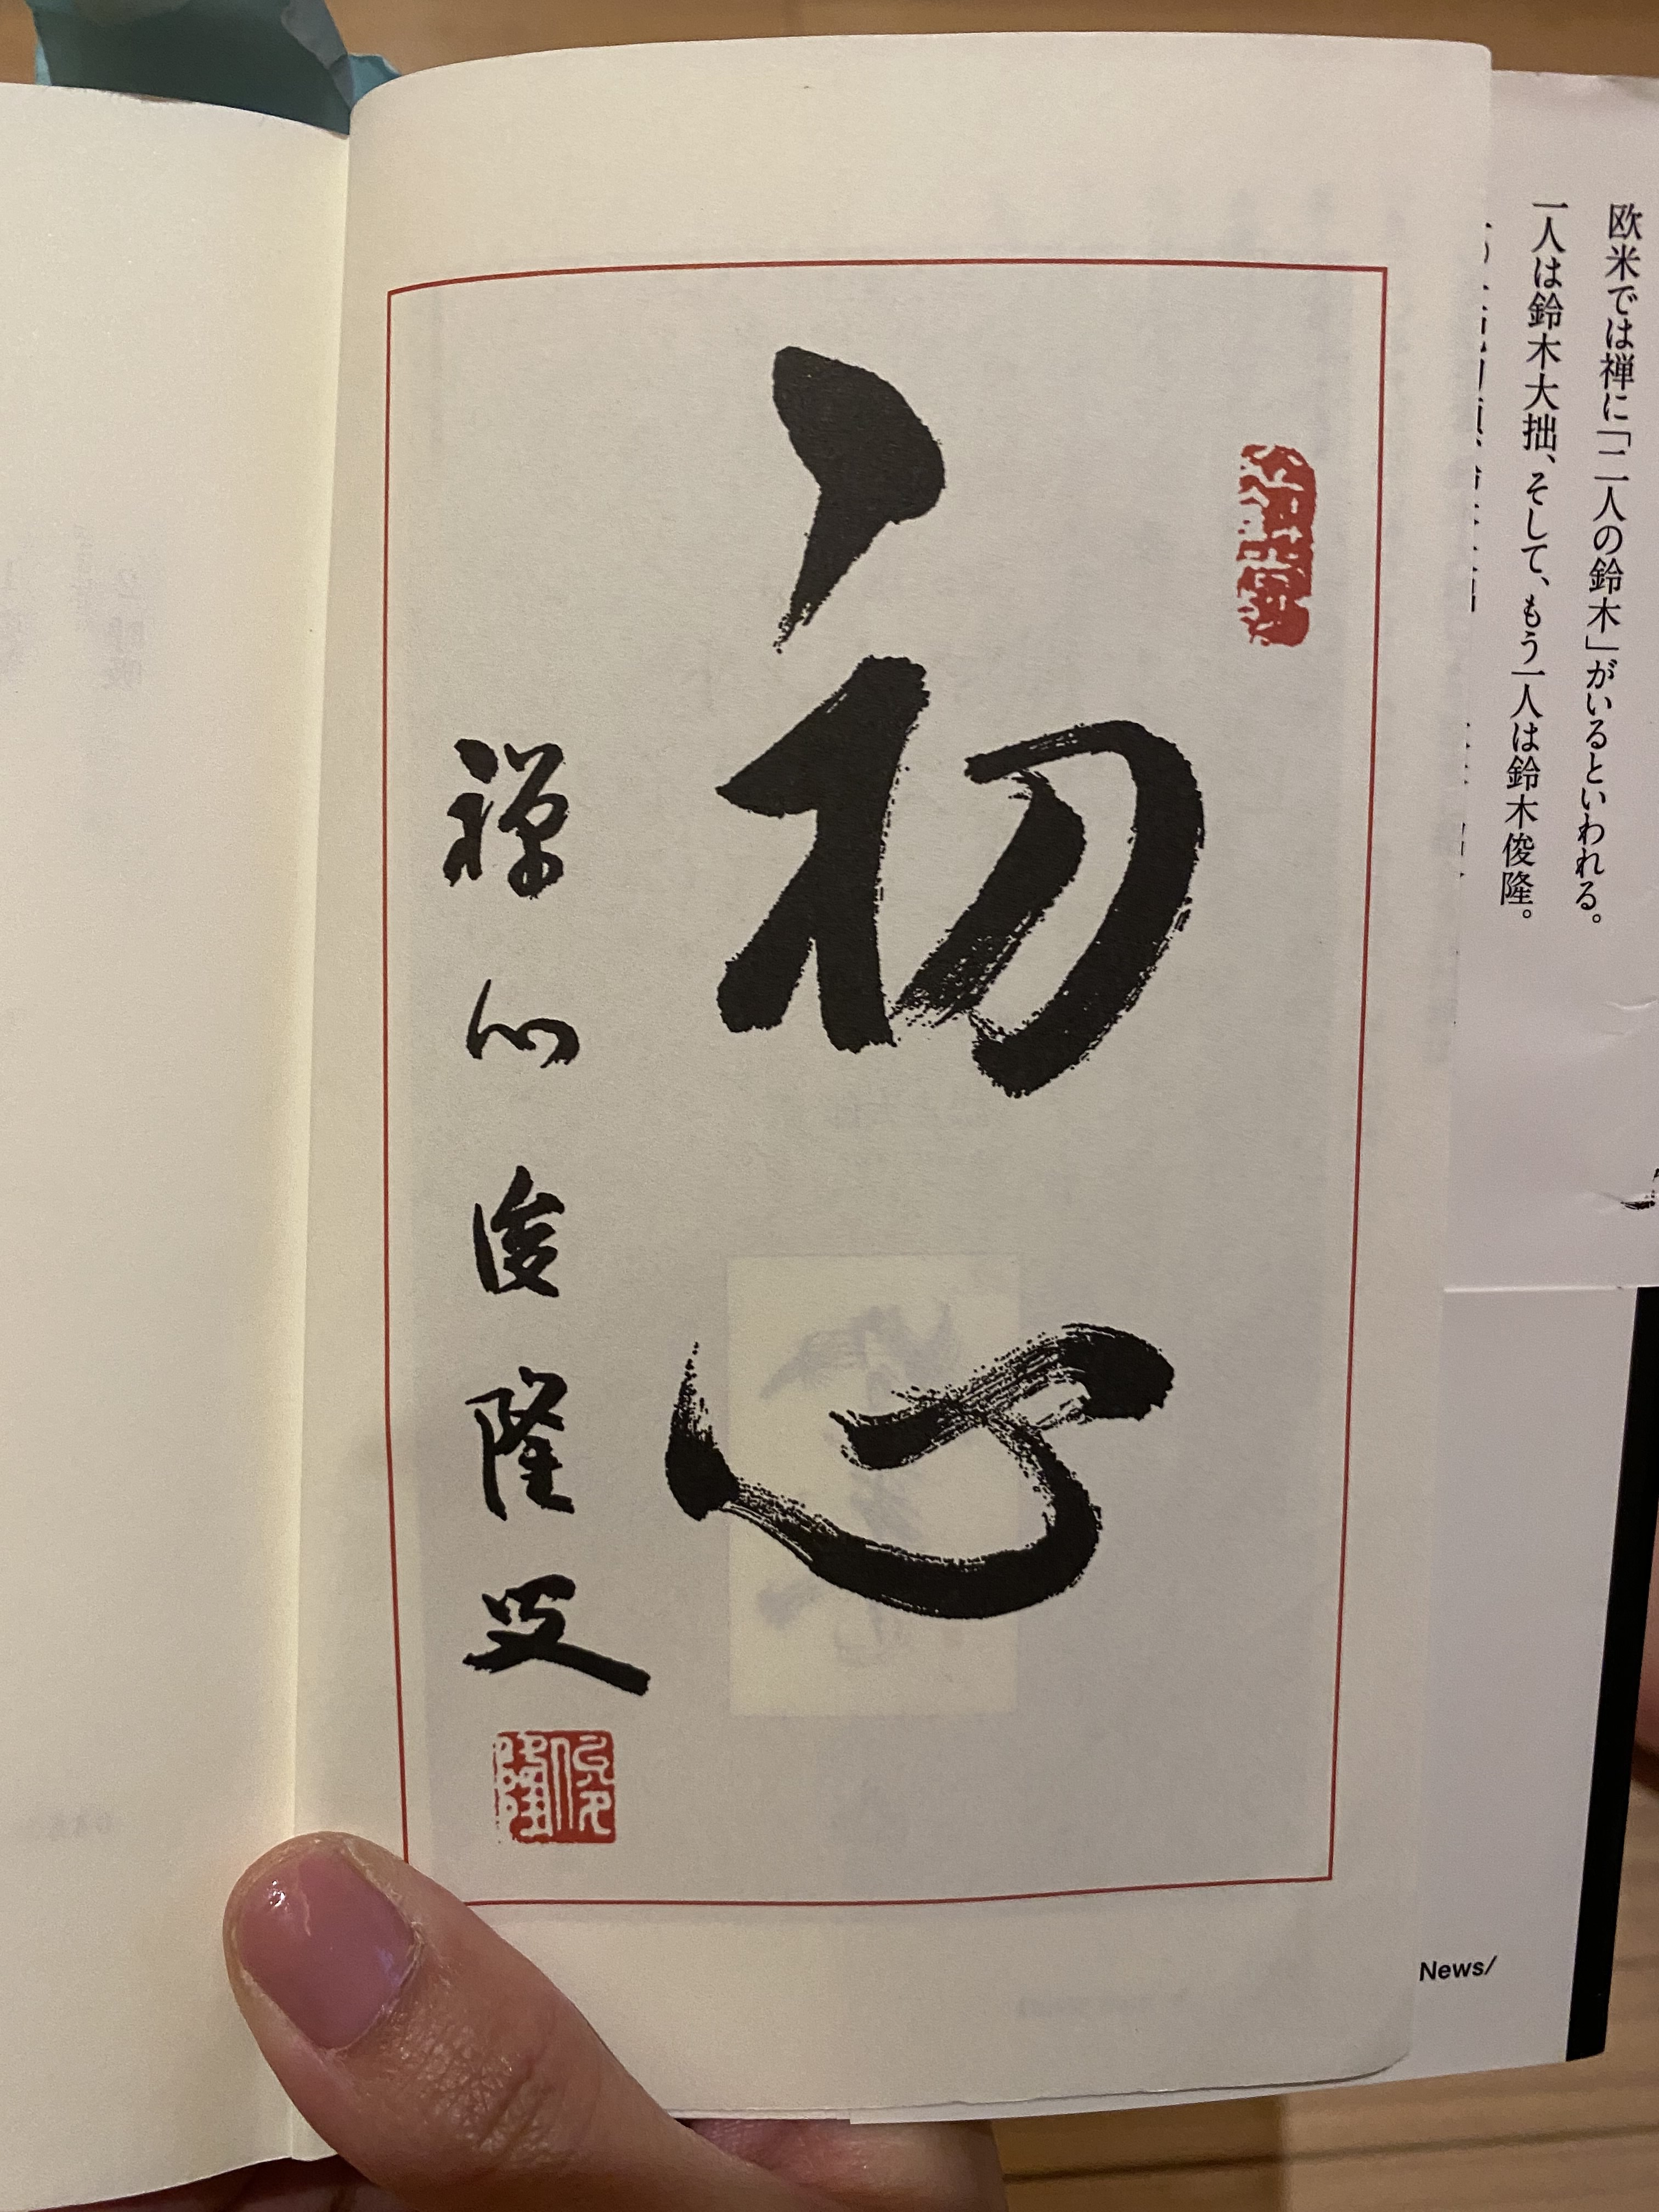 欧米では禅に「二人の鈴木」がいるといわれる。
一人は鈴木大拙、そして、もう一人は鈴木俊隆。
初心
禅心俊隆
俊隆
News/